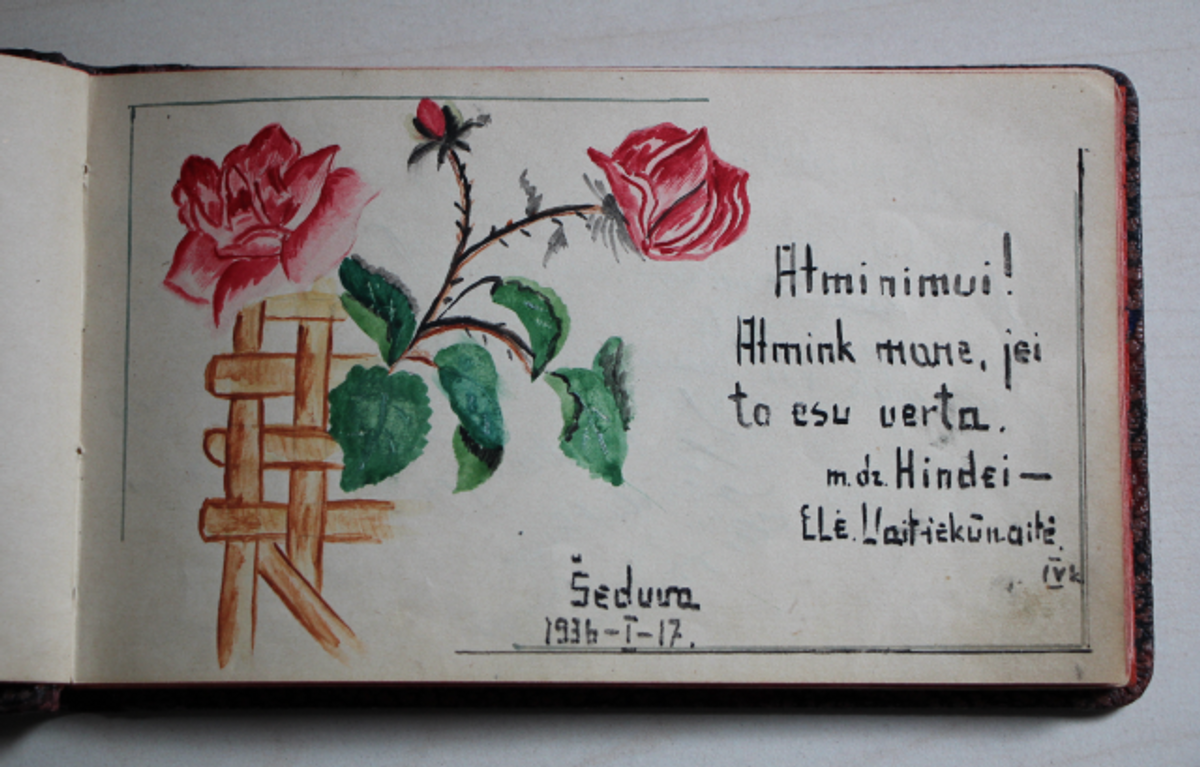 Atminimui!
Atmink mane, jei
to esu verta.
m. dz. Hindei —
Elė. Vaitiekūnaitė.
IV k
Šeduva
1936-I-17.